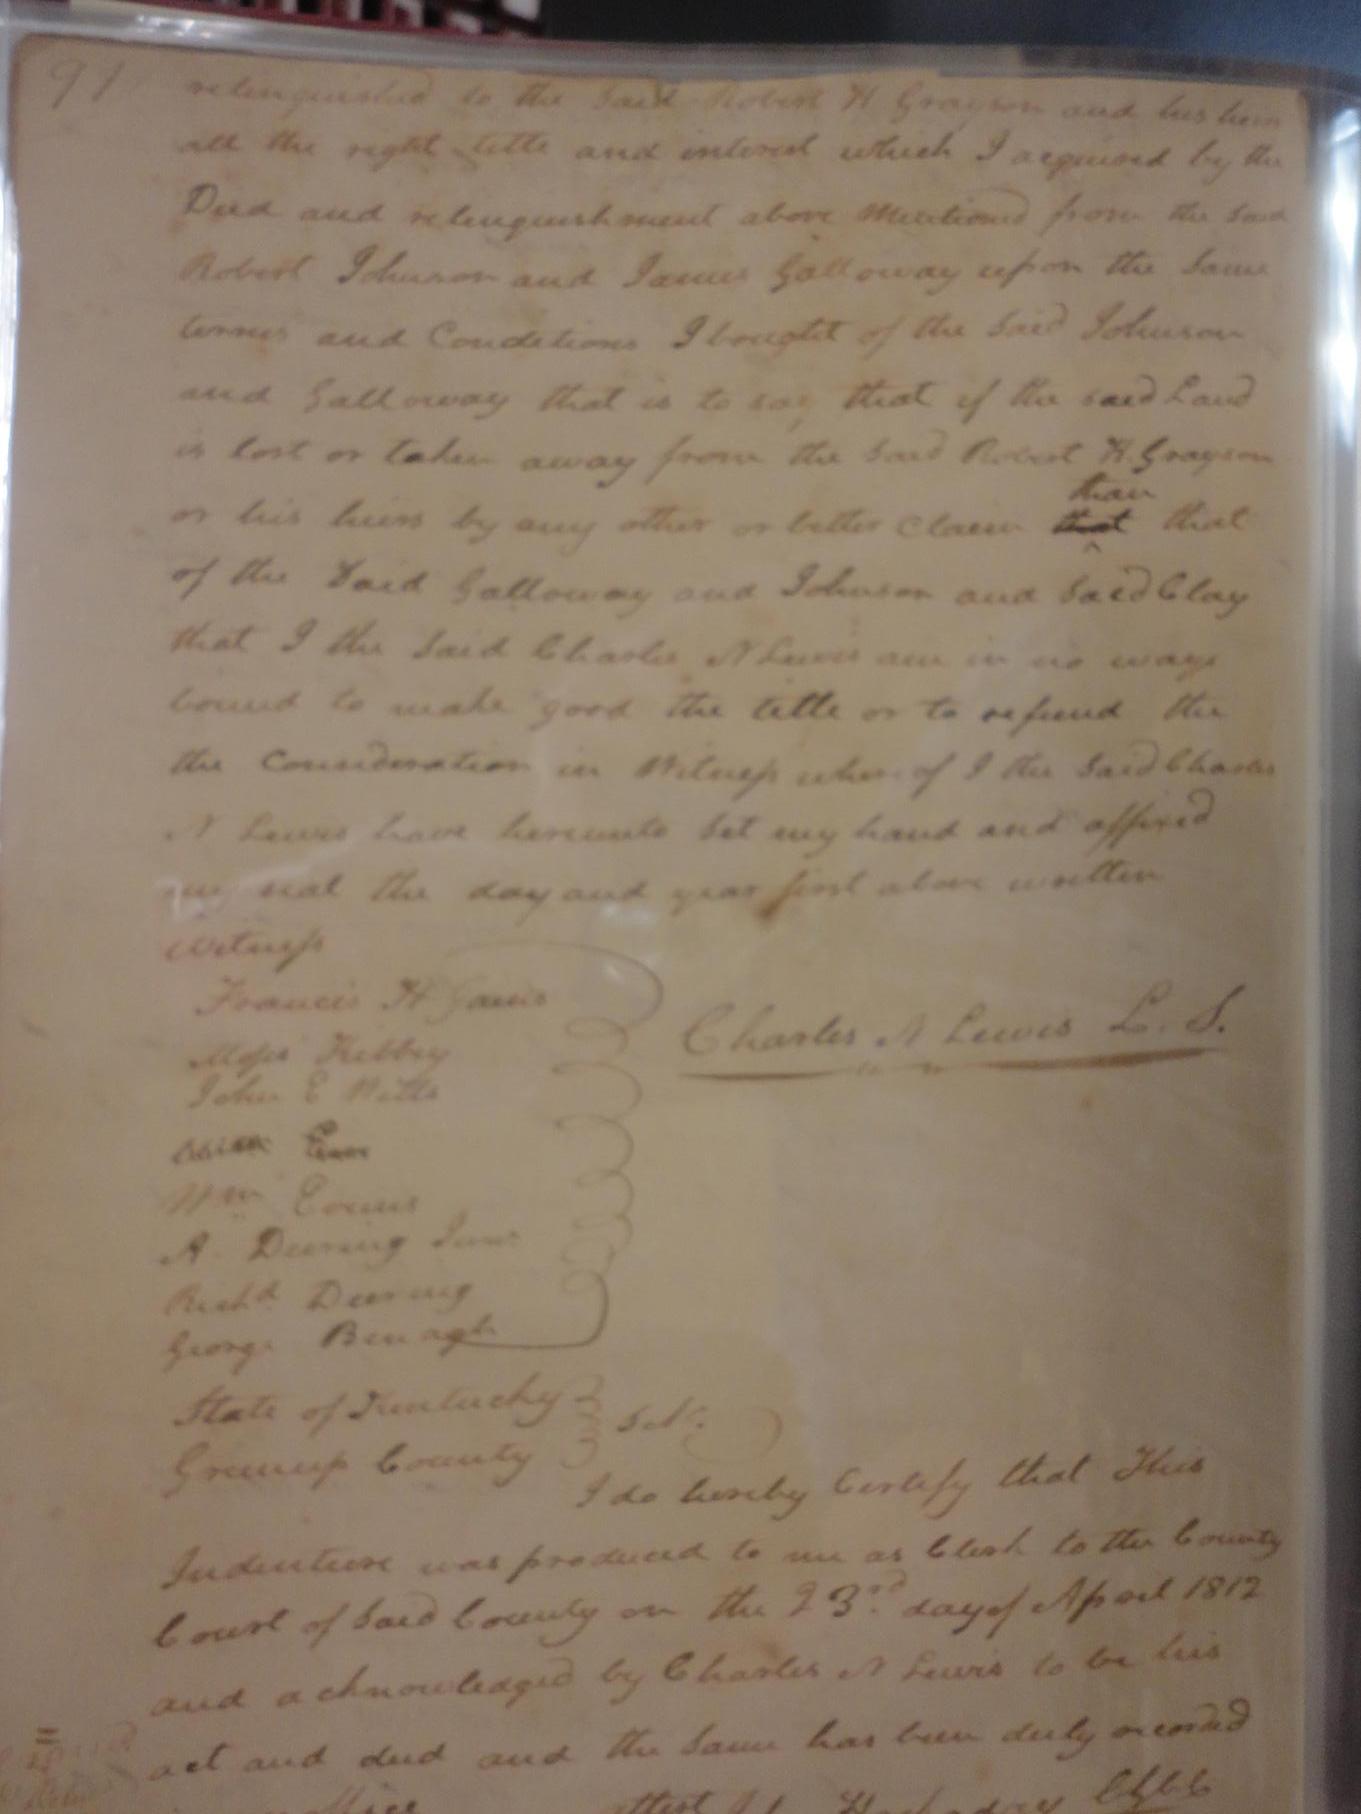 91
relinquished to the Said Robert H Grayson and his heirs
all the right title and interest which I acquired by the
Deed and relinquishment above Mentioned from the Said
Robert Johnson and James Galloway upon the Same
terms and Conditions I bought of the Said Johnson
and Galloway that is to say that if the said Land
is lost or taken away from the Said Robert H. Grayson
than
or his heirs by any other or better Claim that that
of the Said Galloway and Johnson and Said Clay
that I the Said Charles N Lewis am in no ways
bound to make good the title or to refund the
the Consideration in Witness whereof I the Said Charles
N Lewis have hereunto Set my hand and affixed
my seal the day and year first above written
Witness
Francis H Gaines
Moses Kibbey
John E
Charles N Lewis L. S.
Wm Evans
A. Deering Junr
Richd Deering
George
State of Kentucky
Greenup County
I do hereby Certify that This
Indenture was produced to me as Clerk to the County
Court of Said County on the 23rd day of April 1812
and acknowledged by Charles N Lewis to be his
act and deed and the Same has been duly recorded
office attest Hockaday